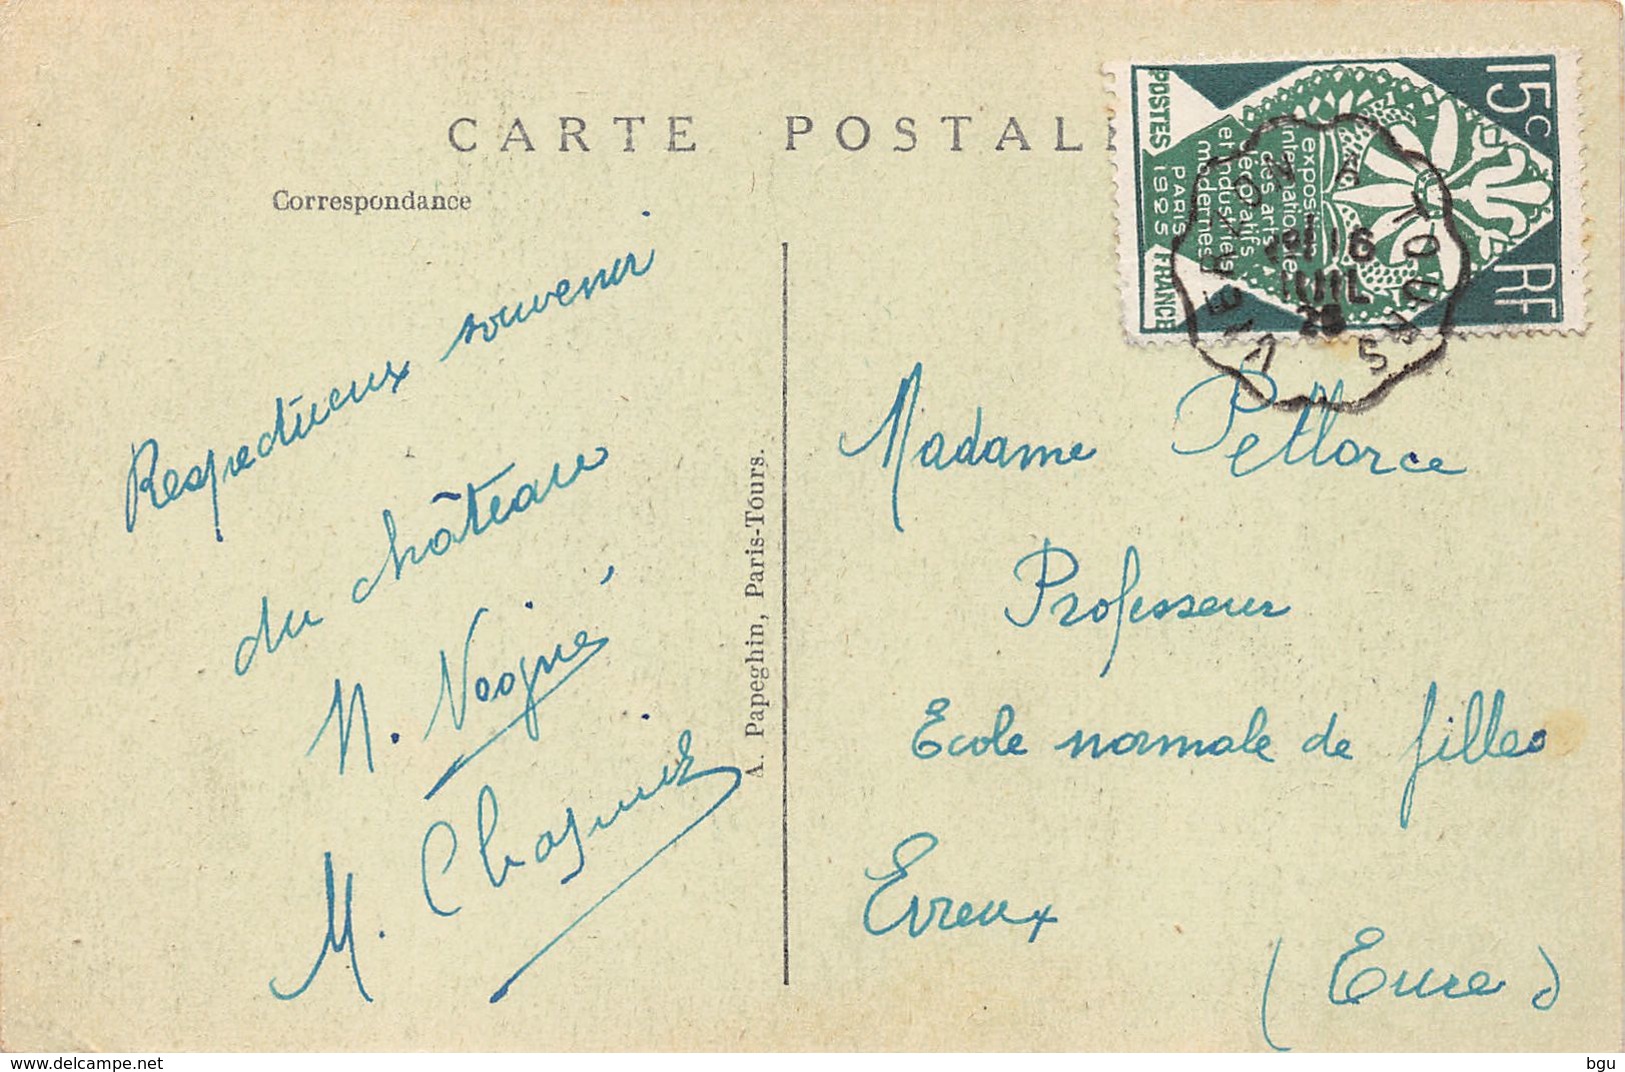 CARTE POSTALE
Correspondance
Respectueux souvenir
du château
N. Voogué
M. Chasniez
A. Papeghin, Paris-Tours.
15c
RF
POSTES FRANCE
exposition
internationale
des arts
décoratifs
et industriels
modernes
PARIS
1925
VIERZON A TOURS
16
JUIL
25
Madame Pellorce
Professeur
Ecole normale de filles
Evreux
(Eure)
delcampe.net
bgu